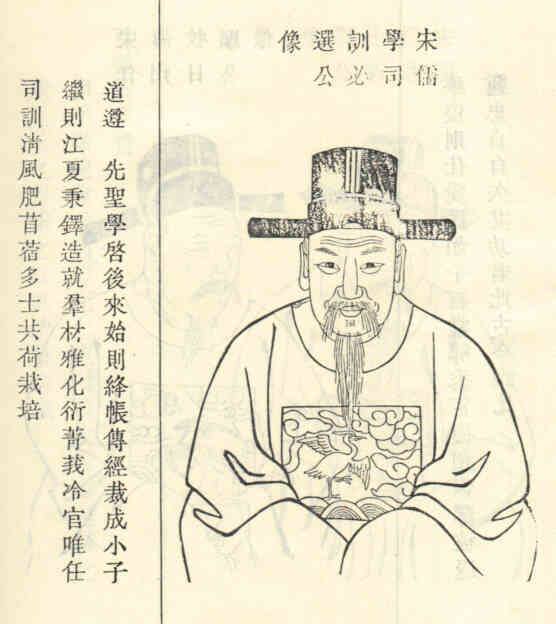 宋儒
學司
訓必
選公
像
道遵 先聖學啓後來始則絳帳傳經裁成小子
繼則江夏秉鐸造就羣材雅化衍菁莪冷官唯任
司訓清風肥苜蓿多士共荷栽培